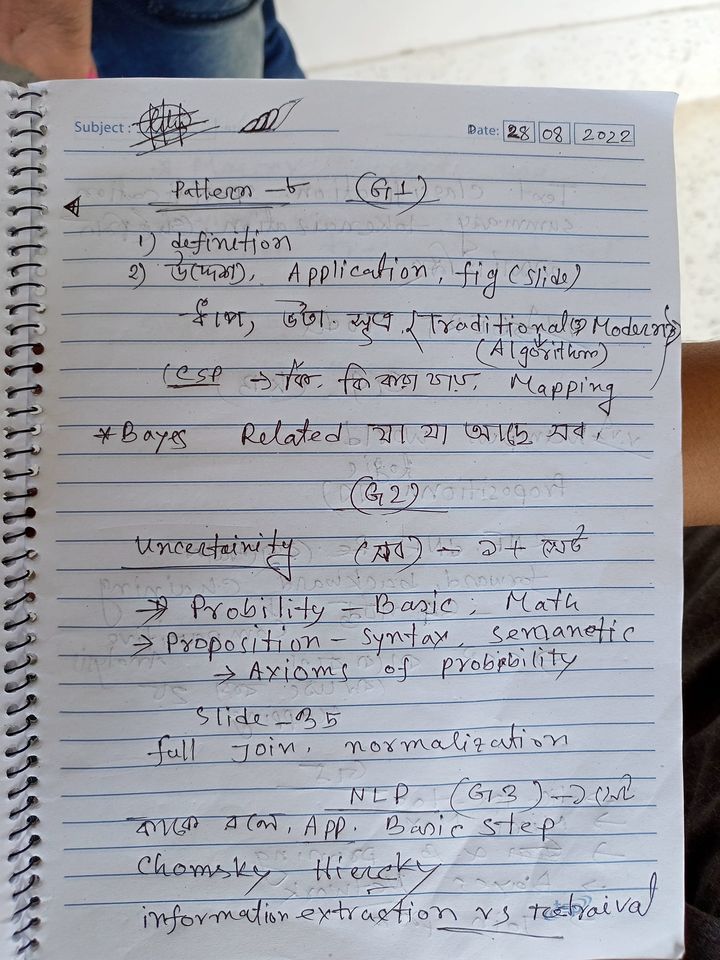 Subject :
Date: 28 08 2022
Pattern - ৮ (G1)
1) definition
২) উদ্দেশ্য, Application, fig (slide)
ধাপ, ডটা সূত্র, (Traditional ও Modern)
(Algorithm)
CSP → কি, কি করা যায়, Mapping
* Bayes Related যা যা আছে সব,
(G2)
Uncertainity (সব) - ১ + সেট
→ Probility - Basic, Math
→ Proposition - syntax, semanetic
→ Axioms of probibility
Slide - 35
full join, normalization
NLP (G3) - ১ সেট
কাকে বলে, App. Basic step
Chomsky Hiercky
information extraction vs retraival